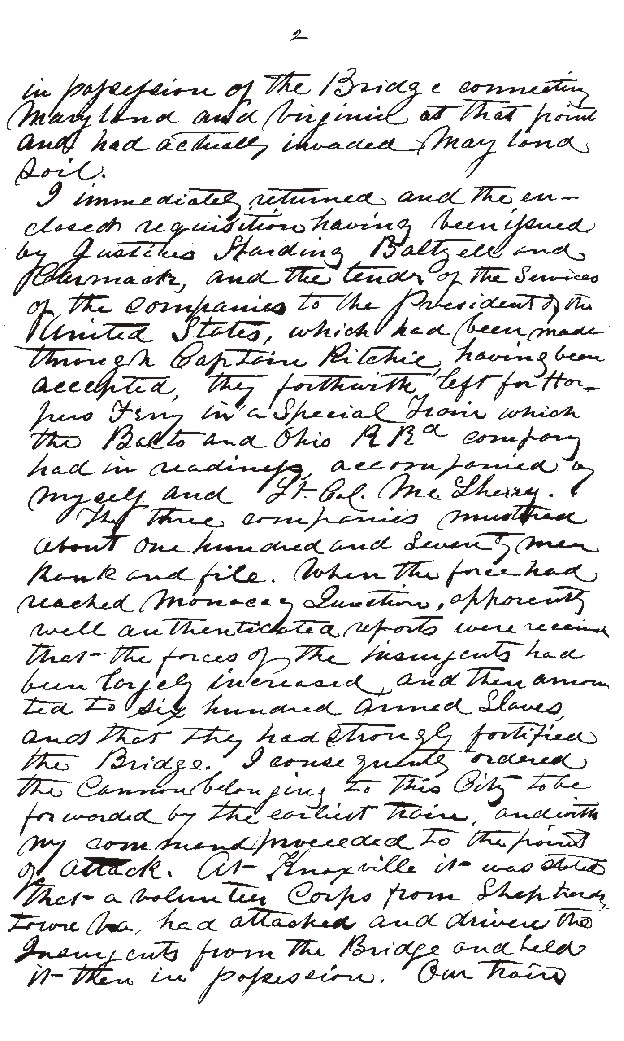 2
in possession of the Bridge connecting
Maryland and Virginia at that point
and had actually invaded Maryland
soil.
I immediately returned and the en-
closed requisition having been issued
by Justices Harding Baltzell and
and the tender of the Services
of the companies to the President of the
United States, which had been made
through Captain Ritchie, having been
accepted, they forthwith left for Har-
pers Ferry in a Special Train which
the Balto and Ohio R Rd company
had in readiness, accompanied by
myself and Lt Col. McSherry.
The three companies mustered
about one hundred and Seventy men
Rank and file. When the force had
reached Monocacy Junction, apparently
well authenticated reports were receive
that the forces of the Insurgents had
been largely increased and then amoun
ted to six hundred armed Slaves,
and that they had strongly fortified
the Bridge. I consequently ordered
the Cannon belonging to this City to be
forwarded by the earliest train, and with
my command proceeded to the point
of attack. At Knoxville it was stated
that a volunteer Corps from Shepherds
town Va, had attacked and driven the
Insurgents from the Bridge and held
it then in possession. Our train